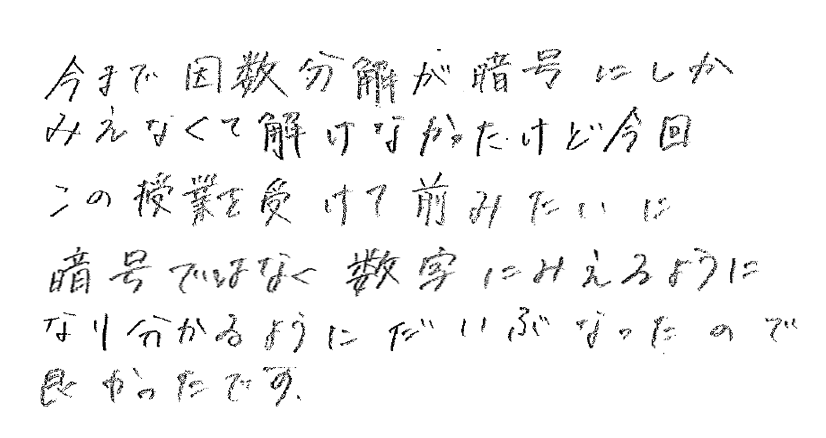 今まで因数分解が暗号にしか
みえなくて解けなかったけど今回
この授業を受けて前みたいに
暗号ではなく数字にみえるように
なり分かるようにだいぶなったので
良かったです.